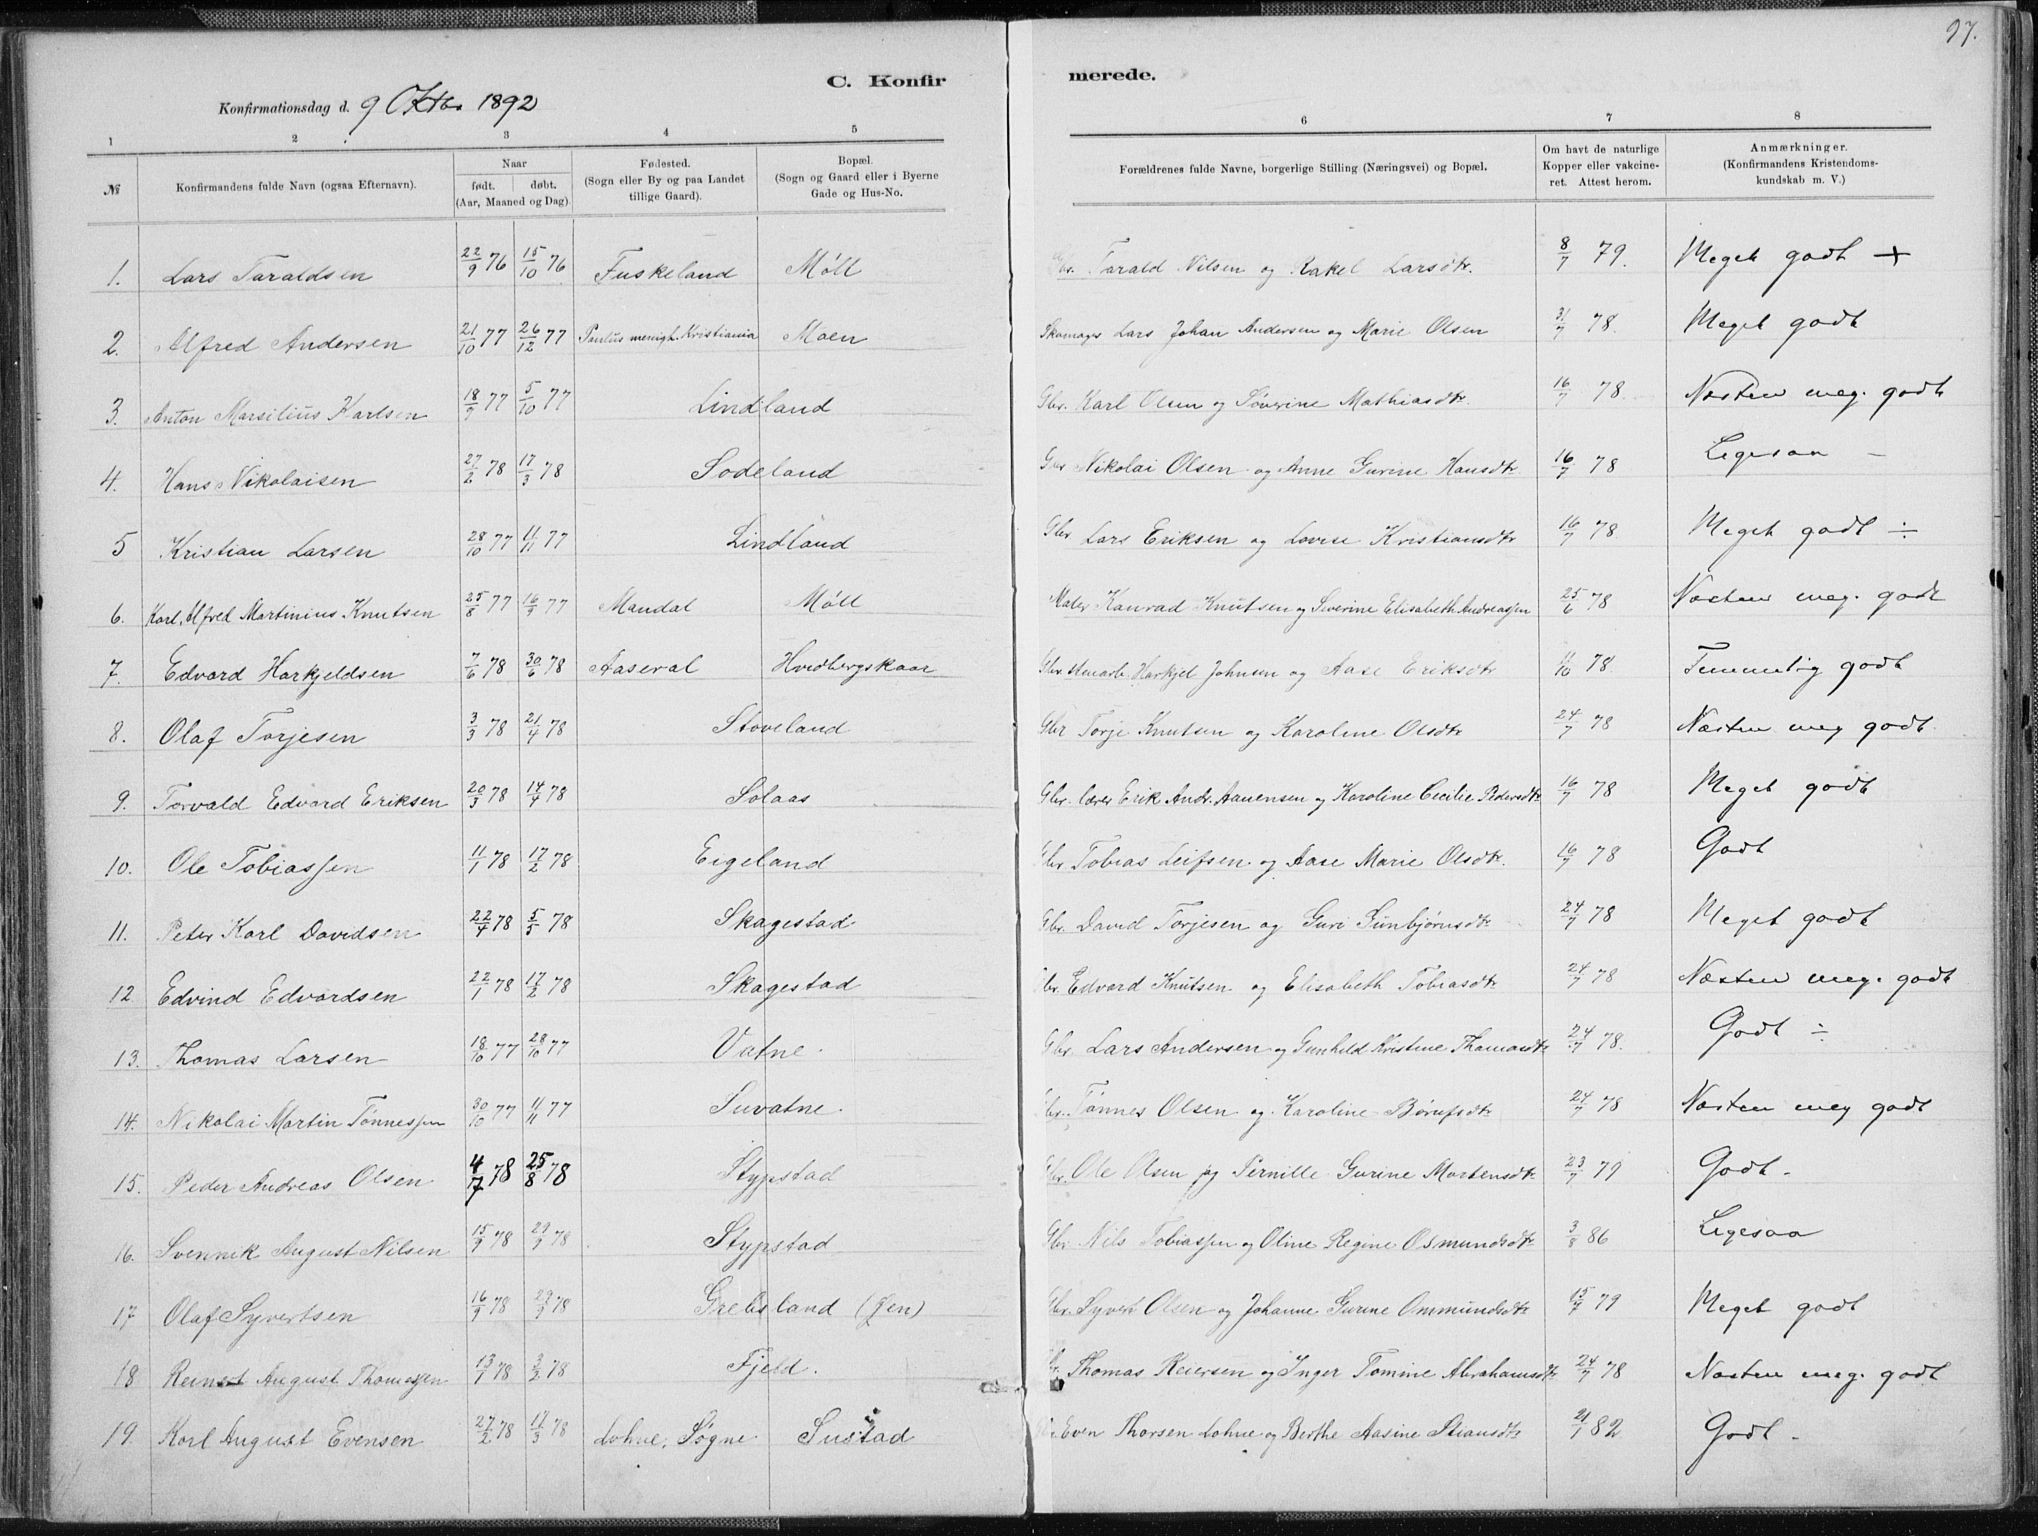 97.
C. Konfirmerede.
Konfirmationsdag d. 9 Oktbr 1892
1 2 3 4 5 6 7 8
№ | Konfirmandens fulde Navn (ogsaa Efternavn). | Naar født. døbt. (Aar, Maaned og Dag). | Fødested. (Sogn eller By og paa Landet tillige Gaard). | Bopæl. (Sogn og Gaard eller i Byerne Gade og Hus-No. | Forældrenes fulde Navne, borgerlige Stilling (Næringsvei) og Bopæl. | Om havt de naturlige Kopper eller vakcineret. Attest herom. | Anmærkninger. (Konfirmandens Kristendomskundskab m. V.)
1. Lars Taraldsen 22/9 76 15/10 76 Fuskeland Møll Gbr. Tarald Nilsen og Rakel Larsdtr. 8/7 79. Meget godt +
2. Alfred Andersen 21/10 77 26/12 77 Paulus menigh. Kristiania Moen Skomager Lars Johan Andersen og Marie Olsen 31/7 78. Meget godt
3. Anton Marsilius Karlsen 18/9 77 5/10 77 Lindland Gbr. Karl Olsen og Søverine Mathiasdtr. 16/7 78. Næsten meg. godt
4. Hans Nikolaisen 27/2 78 17/3 78 Sodeland Gbr Nikolai Olsen og Anne Gurine Hansdtr 16/7 78 Ligesaa –
5 Kristian Larsen 28/10 77 11/11 77 Lindland Gbr Lars Eriksen og Lovise Kristiansdtr 16/7 78. Meget godt ÷
6. Karl Alfred Martinius Knutsen 25/8 77 16/9 77 Mandal Møll Maler Konrad Knutsen og Severine Elisabeth Andreassen 25/6 78 Næsten meg. godt
7. Edvard Harkjeldsen 7/6 78 30/6 78 Aaseral Hvidbergskaar Gbr. Harkjel Johnsen og Aase Eriksdtr 11/10 78. Temmelig godt
8. Olaf Torjesen 3/3 78 21/4 78 Stoveland Gbr Torje Knutsen og Karoline Olsdtr 24/7 78 Næsten meg godt.
9. Torvald Edvard Eriksen 20/3 78 14/4 78 Solaas Gbr. lærer Erik Andr. Aanensen og Karoline Cecilie Pedersdtr 16/7 78 Meget godt
10. Ole Tobiassen 11/1 78 17/2 78 Eigeland Gbr Tobias Leifsen og Aase Marie Olsdtr. 16/7 78 Godt
11. Peter Karl Davidsen 22/4 78 5/5 78 Skagestad Gbr. David Torjesen og Guri Gunbjørnsdtr 24/7 78 Meget godt
12 Edvind Edvardsen 22/1 78 17/2 78 Skagestad Gbr. Edvard Knutsen og Elisabeth Tobiasdtr 24/7 78 Næsten meg. godt
13. Thomas Larsen 18/10 77 28/10 77 Vatne. Gbr. Lars Andersen og Gunhild Kristine Thomasdtr 24/7 78. Godt ÷
14. Nikolai Martin Tønnessen 30/10 77 11/11 77 Suvatne. Gbr. Tønnes Olsen og Karoline Børufsdtr 24/7 78 Næsten meg godt
15. Peder Andreas Olsen 4/7 78 25/8 78 Stypstad Gbr. Ole Olsen og Pernille Gurine Mortensdtr 23/7 79 Godt.
16. Svennik August Nilsen 15/9 78 29/9 78 Stypstad Gbr Nils Tobiassen og Oline Regine Osmundsdtr 3/8 86 Ligesaa
17 Olaf Syvertsen 16/9 78 29/9 78 Grebsland (Øen) Gbr. Syvert Olsen og Johanne Gurine Ommundsdtr 15/7 79 Meget godt
18 Reinert August Thomassen 13/1 78 3/2 78 Fjeld. Gbr. Thomas Reiersen og Inger Tomine Abrahamsdtr 24/7 78 Næsten meg. godt
19. Karl August Evensen 27/2 78 17/3 78 Lohne, Søgne Sustad Even Thorsen Lohne og Berthe Aasine Stiansdtr 21/7 82 Godt.